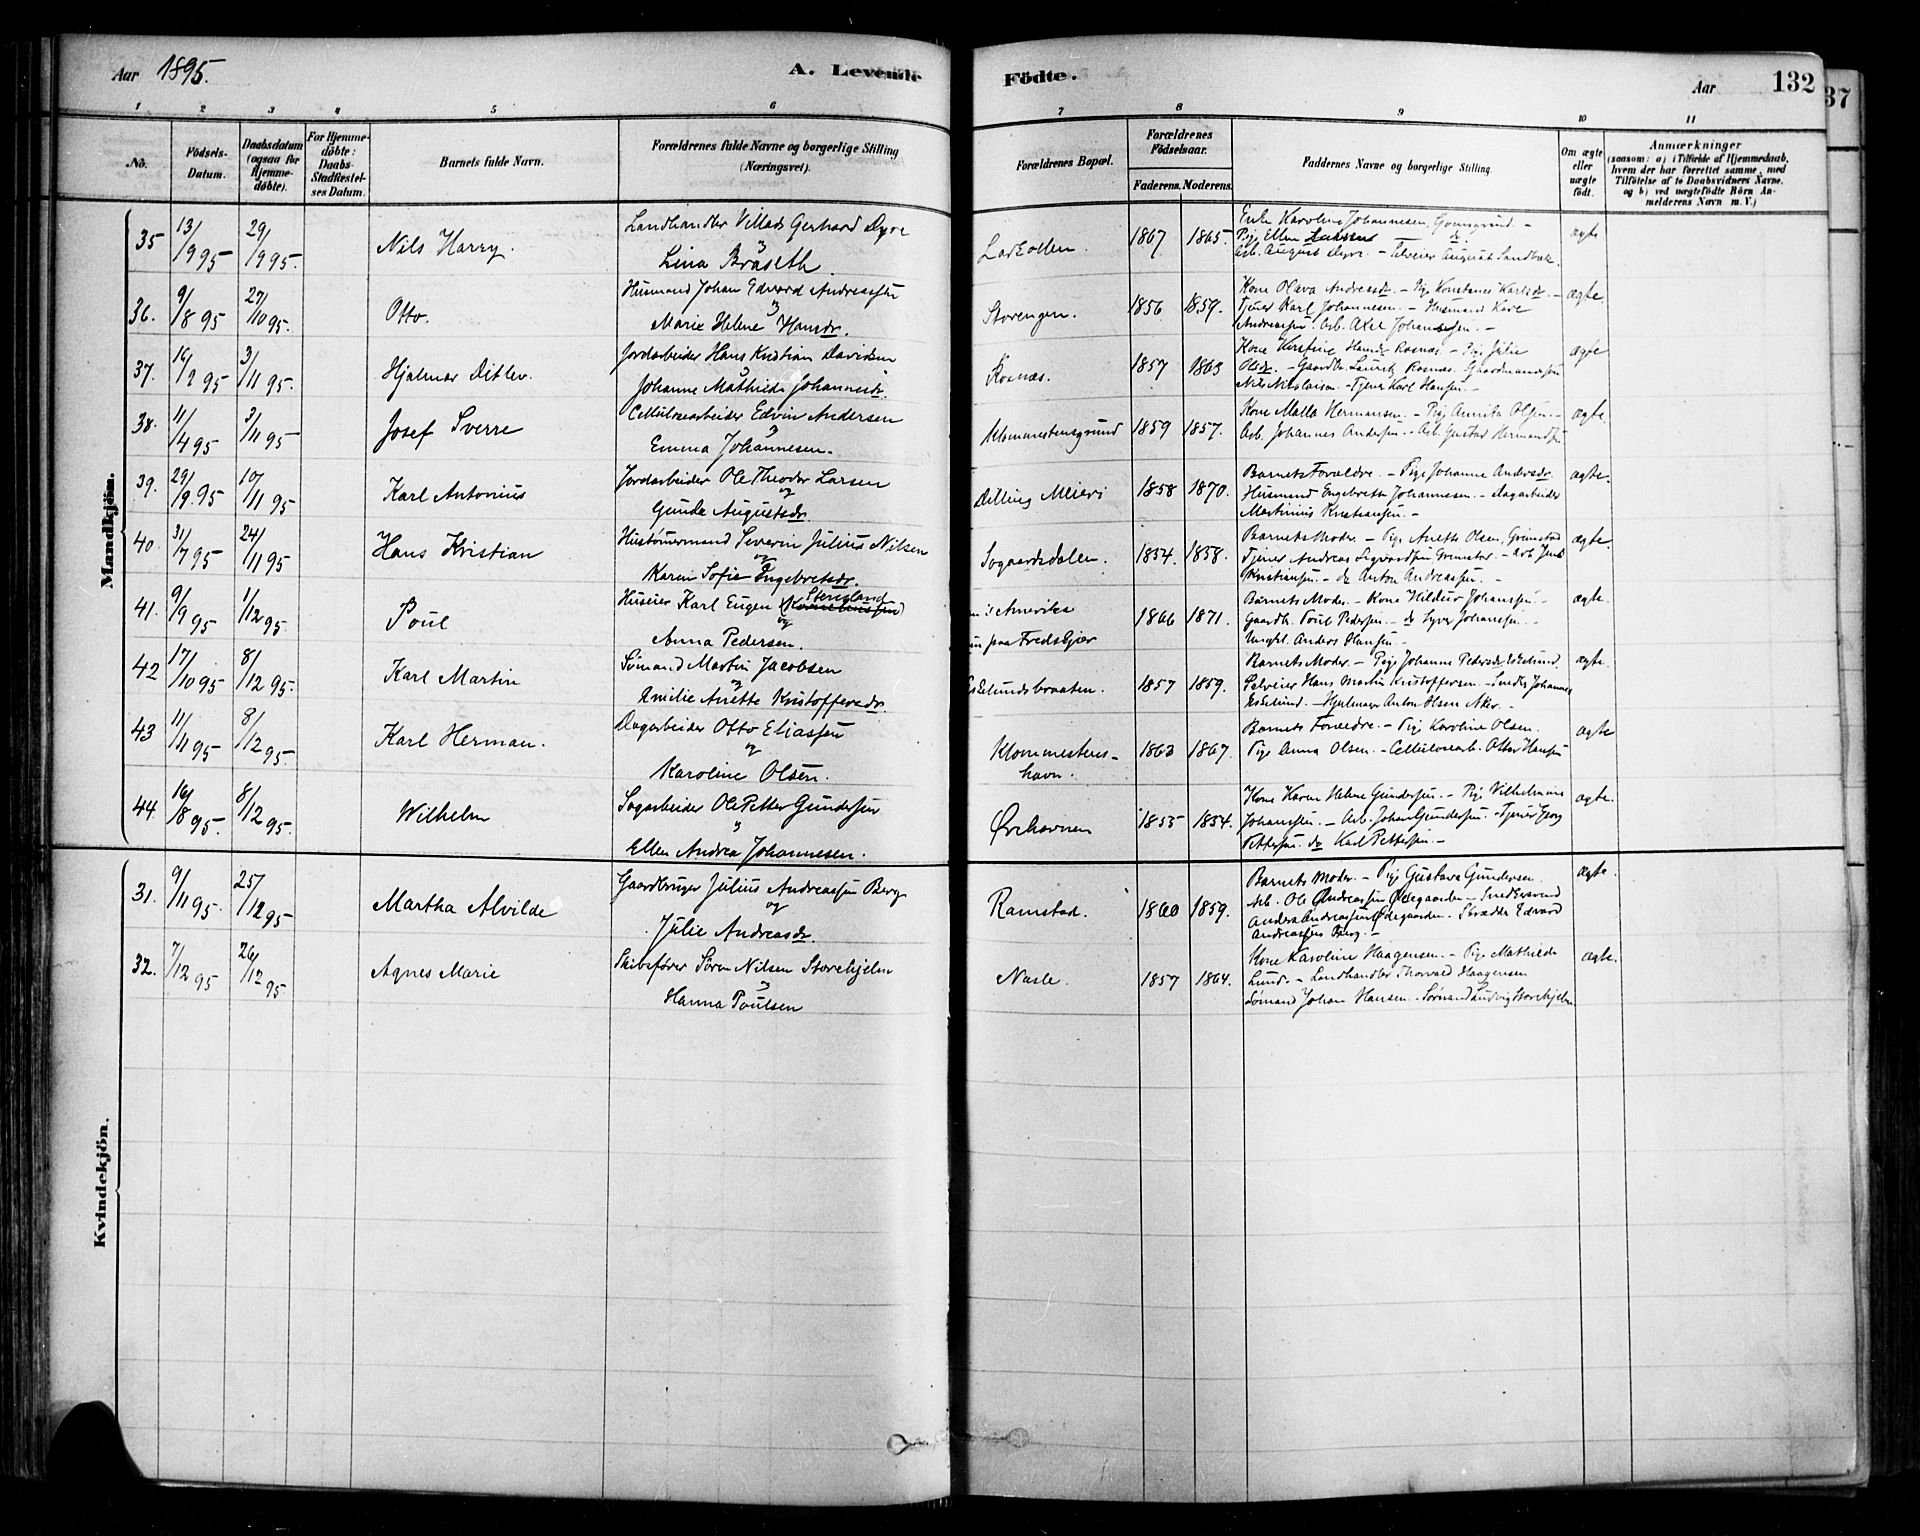 Aar 1895.
A. Levende Födte.
Aar 132
37
1 2 3 4 5 6 7 8 9 10 11
No.
Födsels-Datum.
Daabsdatum (ogsaa for Hjemme-döbte).
For Hjemme-döbte: Daabs-Stadfæstel-ses Datum.
Barnets fulde Navn.
Forældrenes fulde Navne og borgerlige Stilling (Næringsvei).
Forældrenes Bopæl.
Forældrenes Födselsaar.
Faderens. Moderens.
Faddernes Navne og borgerlige Stilling.
Om ægte eller uægte födt.
Anmærkninger
(saasom: a) i Tilfælde af Hjemmedaab, hvem der har forrettet samme, med Tilföielse af to Daabsvidners Navne, og b) ved uægtefödte Börn An-melderens Navn m. V.)
Mandkjön.
35 13/9 95 29/9 95. Nils Harry. Landhandler Villads Gerhard Dyre
og Lina Bråseth. Larkollen. 1867 1865. ægte
Enke Karoline Johannesen,
Pige Ellen
Arb. August Dyre. - Selveier August Sandbæk
36. 9/8 95 27/10 95. Otto. Husmand Johan Edvard Andreassen
og Marie Helene Hansdr. Storengen. 1856 1859. ægte
Kone Olava Andreasdr. - Pige Konstanse Karlsdr. -
Tjener Karl Johannesen. - Husmand Karl
Andreassen. Arb. Axel Johannesen. -
37. 16/9 95 3/11 95. Hjalmar Ditlev. Jordarbeider Hans Kristian Davidsen
og Johanne Mathilde Johannesdr. Rosnæs. 1857 1863 ægte
Kone Kirstine Hansdr Rosnæs. - Pige Julie
Olsdr. - Gaardbr. Laurits Rosnæs.
Nils Nikolaisen - Tjener Karl Hansen. -
38. 11/4 95 3/11 95. Josef Sverre Cellulosearbeider Edvin Andersen
og Emma Johannesen. Klommestensgrund 1859 1857. ægte
Kone Malla Hermansen. - Pige Annita Olsen. -
Arb. Johannes Andersen. - Arb. Gustav Hermansen
39. 29/9. 95 10/11 95 Karl Antonius Jordarbeider Ole Theodor Larsen
og Gunda Augustsdr. Dilling Meieri 1858 1870. ægte.
Barnets Forældre. - Pige Johanne Andersdr.
Husmand Engebrett Johannesen. - Dagarbeider
Martinius Kristiansen. -
40. 31/7 95 24/11 95 Hans Kristian Severin Julius Nilsen
og Karen Sofie Engebretsdr. Sogaardsdalen. 1854. 1858. ægte.
Barnets Moder. - Pige Anette Olsen, Grimstad
Tjener Andreas Grimstad - Arb Jens
Kristiansen. - do Anton Andreassen. -
41. 9/9 95 1/12 95. Poul Huseier Karl Eugen Stensland
og Anna Pedersen. i Amerika
paa Fredskjær 1866 1871. ægte
Barnets Moder - Kone Hildur Johansen. -
Gaardb. Poul Pedersen - do Syver Johansen. -
Ungkl. Anders Hansen. -
42 17/10 95 8/12 95. Karl Martin Sømand Martin Jacobsen
og Amilie Anette Kristoffersdr. Eskelundsbraaten. 1857 1859. ægte.
Barnets Moder - Pige Johanne Pedersdr Eskelund.
Selveier Hans Martin Kristoffersen. - Smed Johannes
Eskelund. - Hjulmager Anton Olsen Aker. -
43 11/11 95 8/12 95. Karl Herman. Dagarbeider Otto Eliassen
og Karoline Olsen. Klommestens-
havn. 1863 1867. ægte
Barnets Forældre. - Pige Karoline Olsen.
Pige Anna Olsen. - Cellulosearb. Ottar Hansen
44. 16/8 95. 8/12 95. Wilhelm Sagarbeider Ole Petter Gundersen
og Ellen Andrea Johannesen. Ørehavnen 1855 1854. ægte.
Kone Karen Helene Gundersen. - Pige Vilhelmine
Johansen. - Arb. Johan Gundersen. - Tjener Georg
Pettersen. do Karl Pettersen. -
Kvindekjön.
31. 9/11 95. 25/12 95 Martha Alvilde Gaardbruger Julius Andreassen Berg
og Julie Andreasdr. Ramstad. 1860 1859. ægte.
Barnets Moder. - Pige Gustava Gundersen.
Arb. Ole Andreassen Ødegaarden - Smedsvend
Anders Andreassen Ødegaarden. - Skrædder Edvard
Andreassen Berg. -
32. 7/12 95 26/12 95. Agnes Marie Skibsfører Søren Nilsen Storehjelm
og Hanna Poulsen Narle. 1857 1864. ægte.
Kone Karoline Haagensen. - Pige Mathilde
Lund. - Landhandler Thorvald Haagensen
Sømand Johan Hansen. - Sømand Ludvig Storehjelm